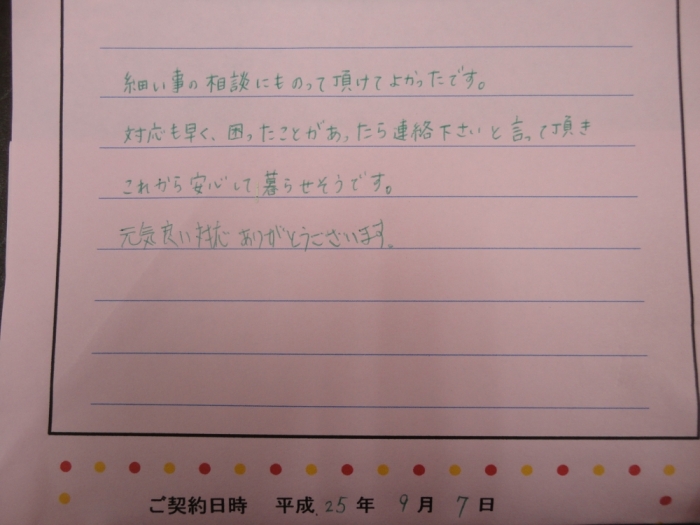 細い事の相談にものって頂けてよかったです。
対応も早く、困ったことがあったら連絡下さいと言って頂き
これから安心して暮らせそうです。
元気良い対応ありがとうございます。
ご契約日時 平成 25 年 9 月 7 日